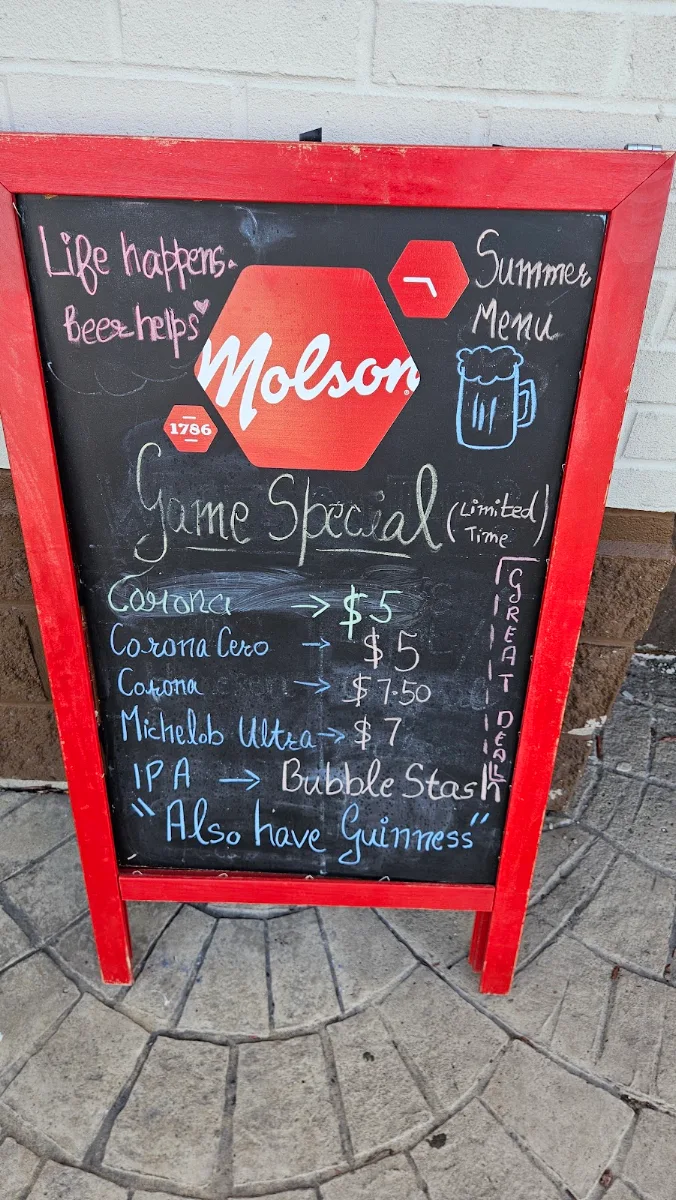 Life happens.
Beer helps
Summer
Menu
Molson
1786
Game Special (Limited Time)
Corona → $5
Corona Cero → $5
Corona → $7.50
Michelob Ultra → $7
IPA → Bubble Stash
"Also have Guinness"
GREAT DEAL